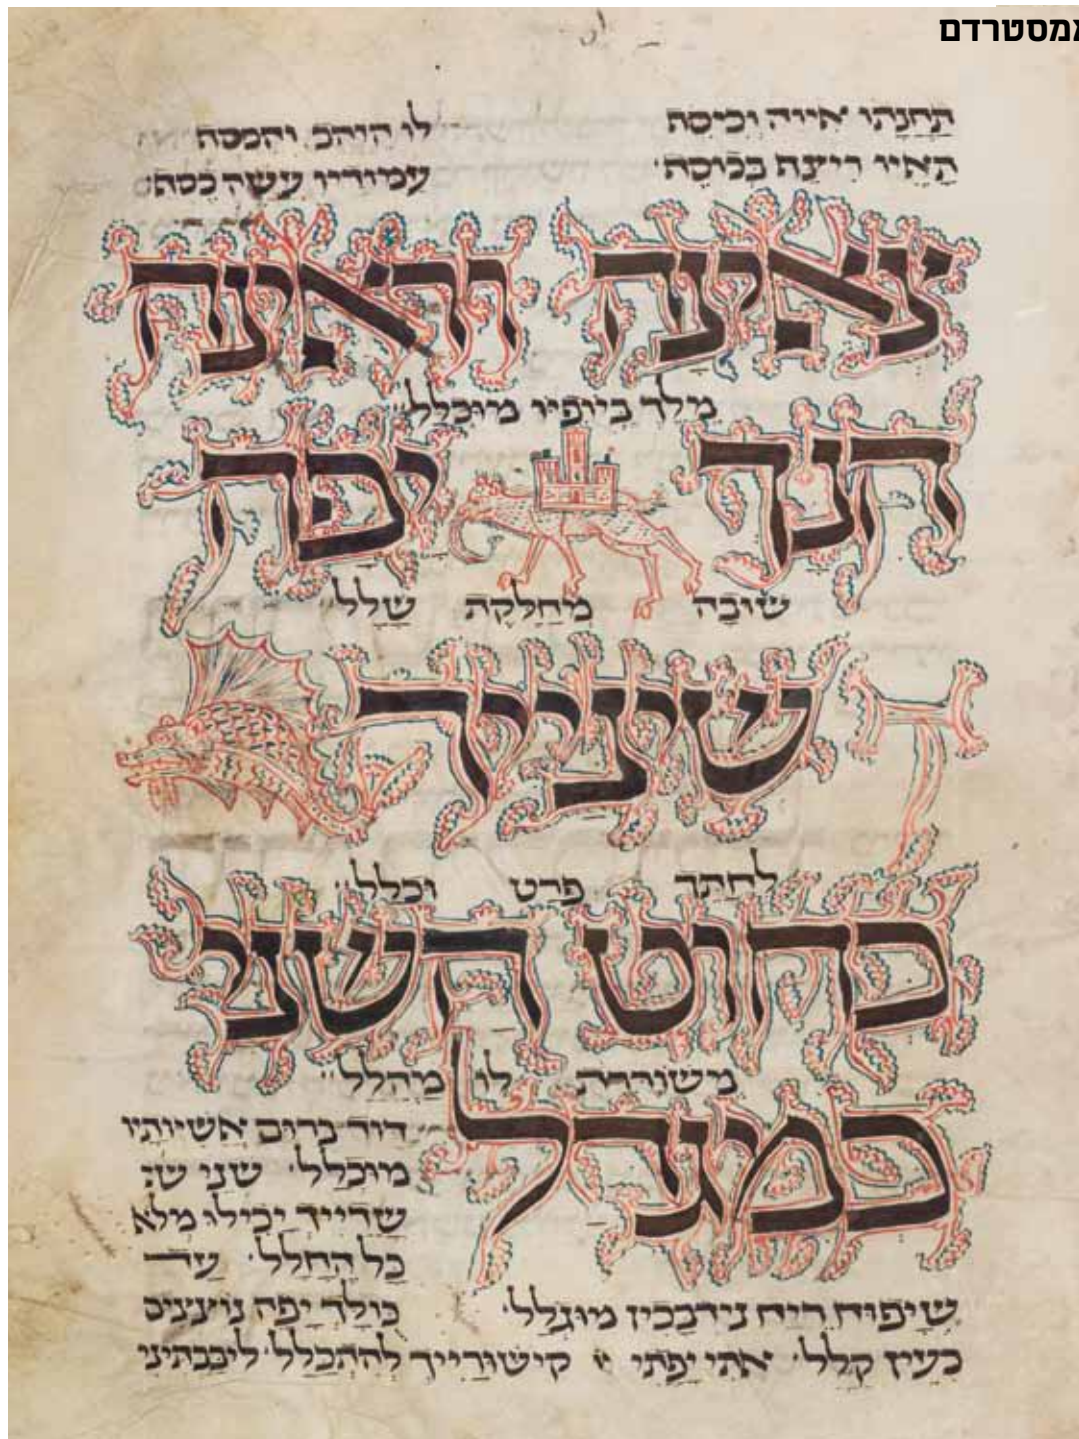 ממסטרדם
תַחֲנָהוּ אִיוָּה וְכִיסָה לו הוֹהַב וְהִכְסָה
הָאֵיוּ רִיצַת בְּכוֹסָה׃ עמוריו עָשָׂה כסת׃
צאינה וראינה
מֶלֶךְ בְּיופְיוּ מוּכְלָל׃
הנך יפה
שׁוּבָה מְחַלֶקֶת שָׁלָל׃
שיניך
לחַתֵךְ פְרָט וכלל׃
כחוט השני
משוררת לו מַהֲלַל׃
כמגדל
דור כרום אֲשִׁיותָיו
מוכלל׳ שני ש׃
שָׁדַיִיךְ יַכִילוּ מְלֹא
כל הֶחָלָל׳ עַד
שֶׁיָפוּחַ רֵיחַ נִידְבָכִין מוּגְלָל׳ כוּלָךְ יָפָה נוֹצְצִים
כְעֵין קָלָל׳ אתי יָפָתִי קישוּרַיִיךְ לְהִתְכַלֵל׳ ליבבתיני